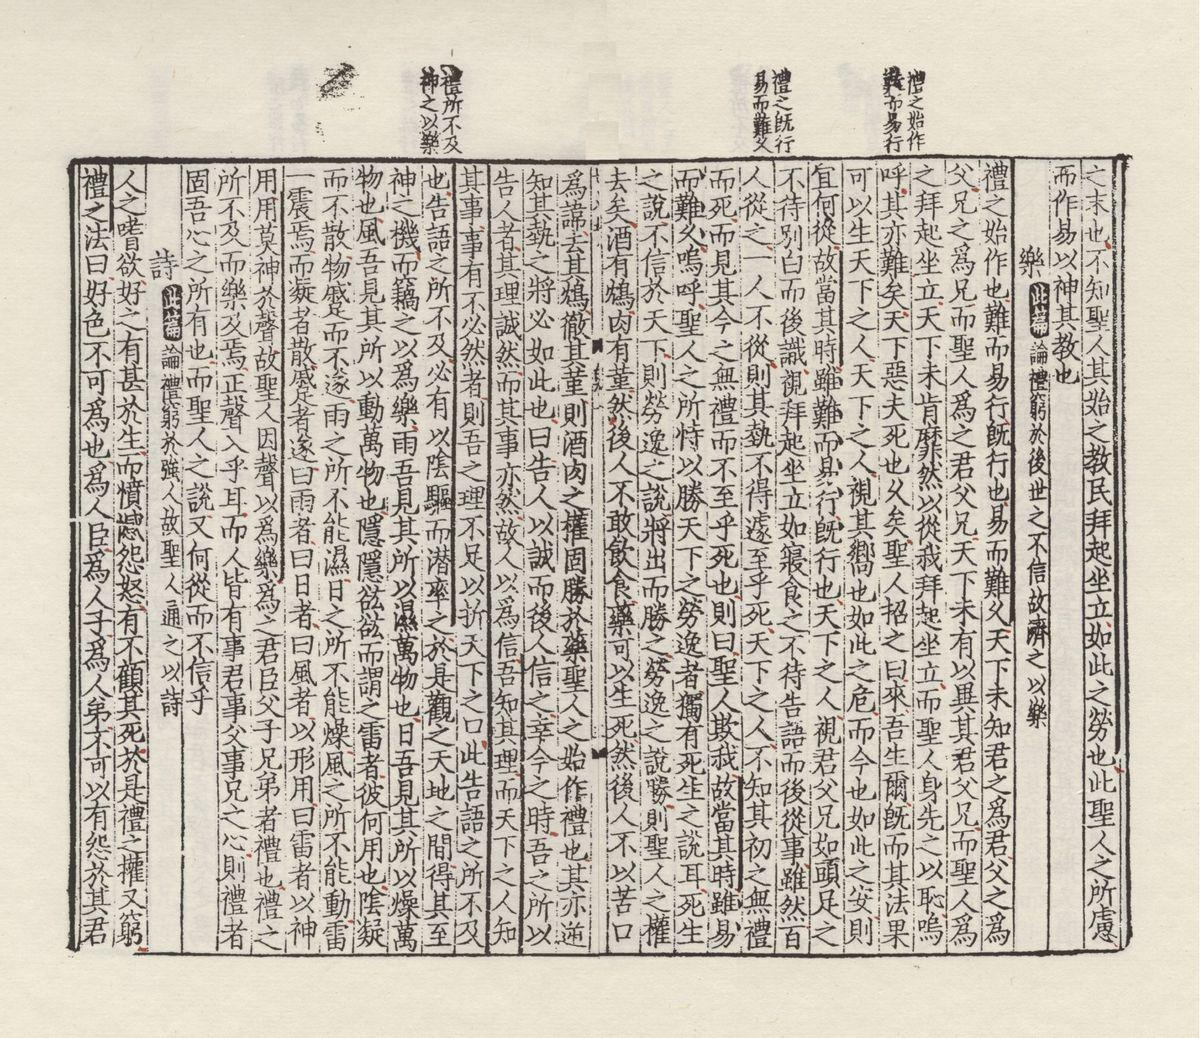 禮之始作
難而易行
禮之旣行
易而難久
禮所不及
神之以樂
之末也不知聖人其始之教民拜起坐立如此之勞也此聖人之所慮
而作易以神其教也
樂 此篇 論禮窮於後世之不信故濟之以樂
禮之始作也難而易行旣行也易而難久天下未知君之爲君父之爲
父兄之爲兄而聖人爲之君父兄天下未有以異其君父兄而聖人爲
之拜起坐立天下未肯靡然以從我拜起坐立而聖人身先之以恥嗚
呼其亦難矣天下惡夫死也久矣聖人招之曰來吾生爾旣而其法果
可以生天下之人天下之人視其嚮也如此之危而今也如此之安則
宜何從故當其時雖難而易行旣行也天下之人視君父兄如頭足之
不待別白而後識視拜起坐立如寢食之不待告語而後從事雖然百
人從之一人不從則其埶不得遽至乎死天下之人不知其初之無禮
而死而見其今之無禮而不至乎死也則曰聖人欺我故當其時雖易
而難久嗚呼聖人之所恃以勝天下之勞逸者獨有死生之說耳死生
之說不信於天下則勞逸之說將出而勝之勞逸之說勝則聖人之權
去矣酒有鴆肉有堇然後人不敢飲食藥可以生死然後人不以苦口
爲諱去其鴆徹其堇則酒肉之權固勝於藥聖人之始作禮也其亦逆
知其埶之將必如此也曰告人以誠而後人信之幸今之時吾之所以
告人者其理誠然而其事亦然故人以爲信吾知其理而天下之人知
其事事有不必然者則吾之理不足以折天下之口此告語之所不及
也告語之所不及必有以陰驅而潛率之於是觀之天地之間得其至
神之機而竊之以爲樂雨吾見其所以濕萬物也日吾見其所以燥萬
物也風吾見其所以動萬物也隱隱谹谹而謂之雷者彼何用也陰凝
而不散物蹙而不遂雨之所不能濕日之所不能燥風之所不能動雷
一震焉而凝者散蹙者遂曰雨者曰日者曰風者以形用曰雷者以神
用用莫神於聲故聖人因聲以爲樂爲之君臣父子兄弟者禮也禮之
所不及而樂及焉正聲入乎耳而人皆有事君事父事兄之心則禮者
固吾心之所有也而聖人之說又何從而不信乎
詩 此篇 論禮窮於強人故聖人通之以詩
人之嗜欲好之有甚於生而憤憾怨怒有不顧其死於是禮之權又窮
禮之法曰好色不可爲也爲人臣爲人子爲人弟不可以有怨於其君